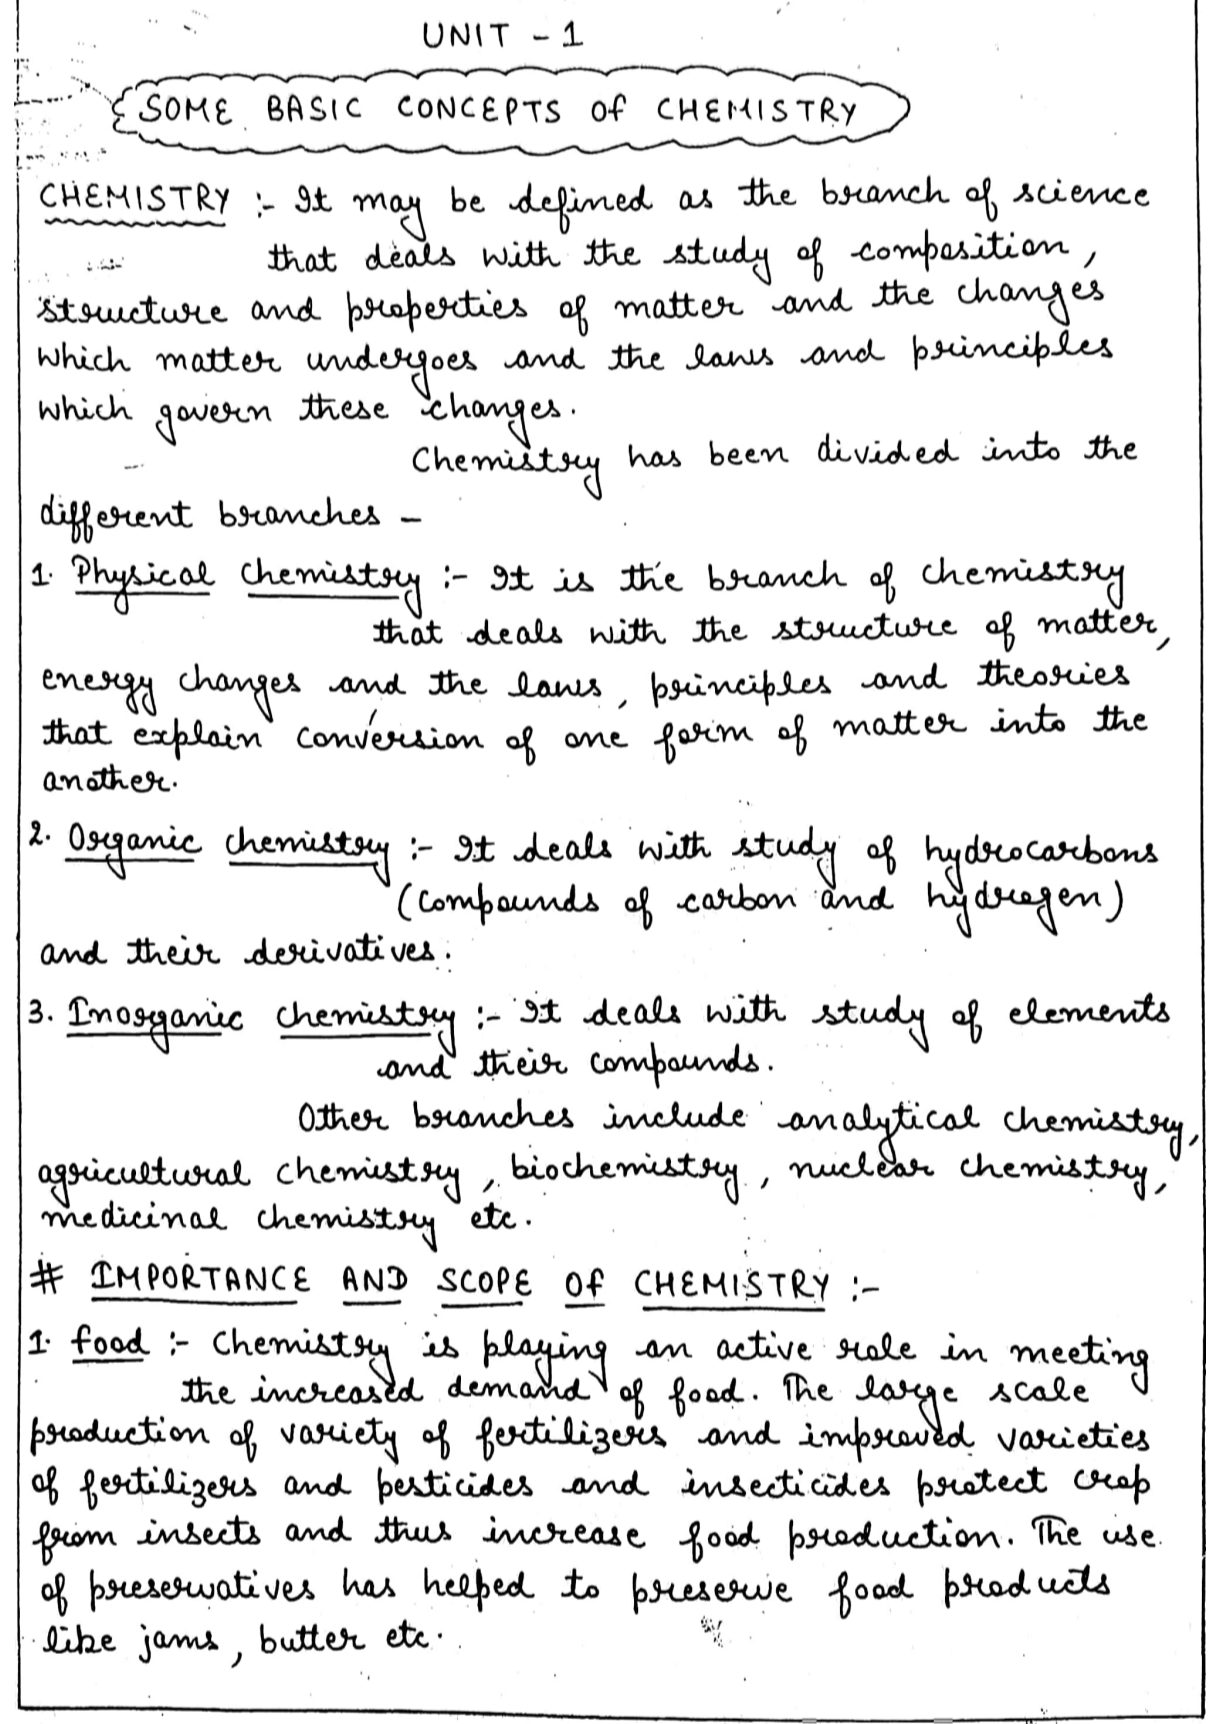 UNIT - 1
SOME BASIC CONCEPTS Of CHEMISTRY
CHEMISTRY :- It may be defined as the branch of science
that deals with the study of composition,
structure and properties of matter and the changes
which matter undergoes and the laws and principles
which govern these changes.
Chemistry has been divided into the
different branches -
1. Physical chemistry :- It is the branch of chemistry
that deals with the structure of matter,
energy changes and the laws, principles and theories
that explain conversion of one form of matter into the
another.
2. Organic chemistry :- It deals with study of hydrocarbons
(compounds of carbon and hydrogen)
and their derivatives.
3. Inorganic chemistry :- It deals with study of elements
and their compounds.
Other branches include analytical chemistry,
agricultural chemistry, biochemistry, nuclear chemistry,
medicinal chemistry etc.
# IMPORTANCE AND SCOPE Of CHEMISTRY :-
1. food :- Chemistry is playing an active role in meeting
the increased demand of food. The large scale
production of variety of fertilizers and improved varieties
of fertilizers and pesticides and insecticides protect crop
from insects and thus increase food production. The use
of preservatives has helped to preserve food products
like jams, butter etc.